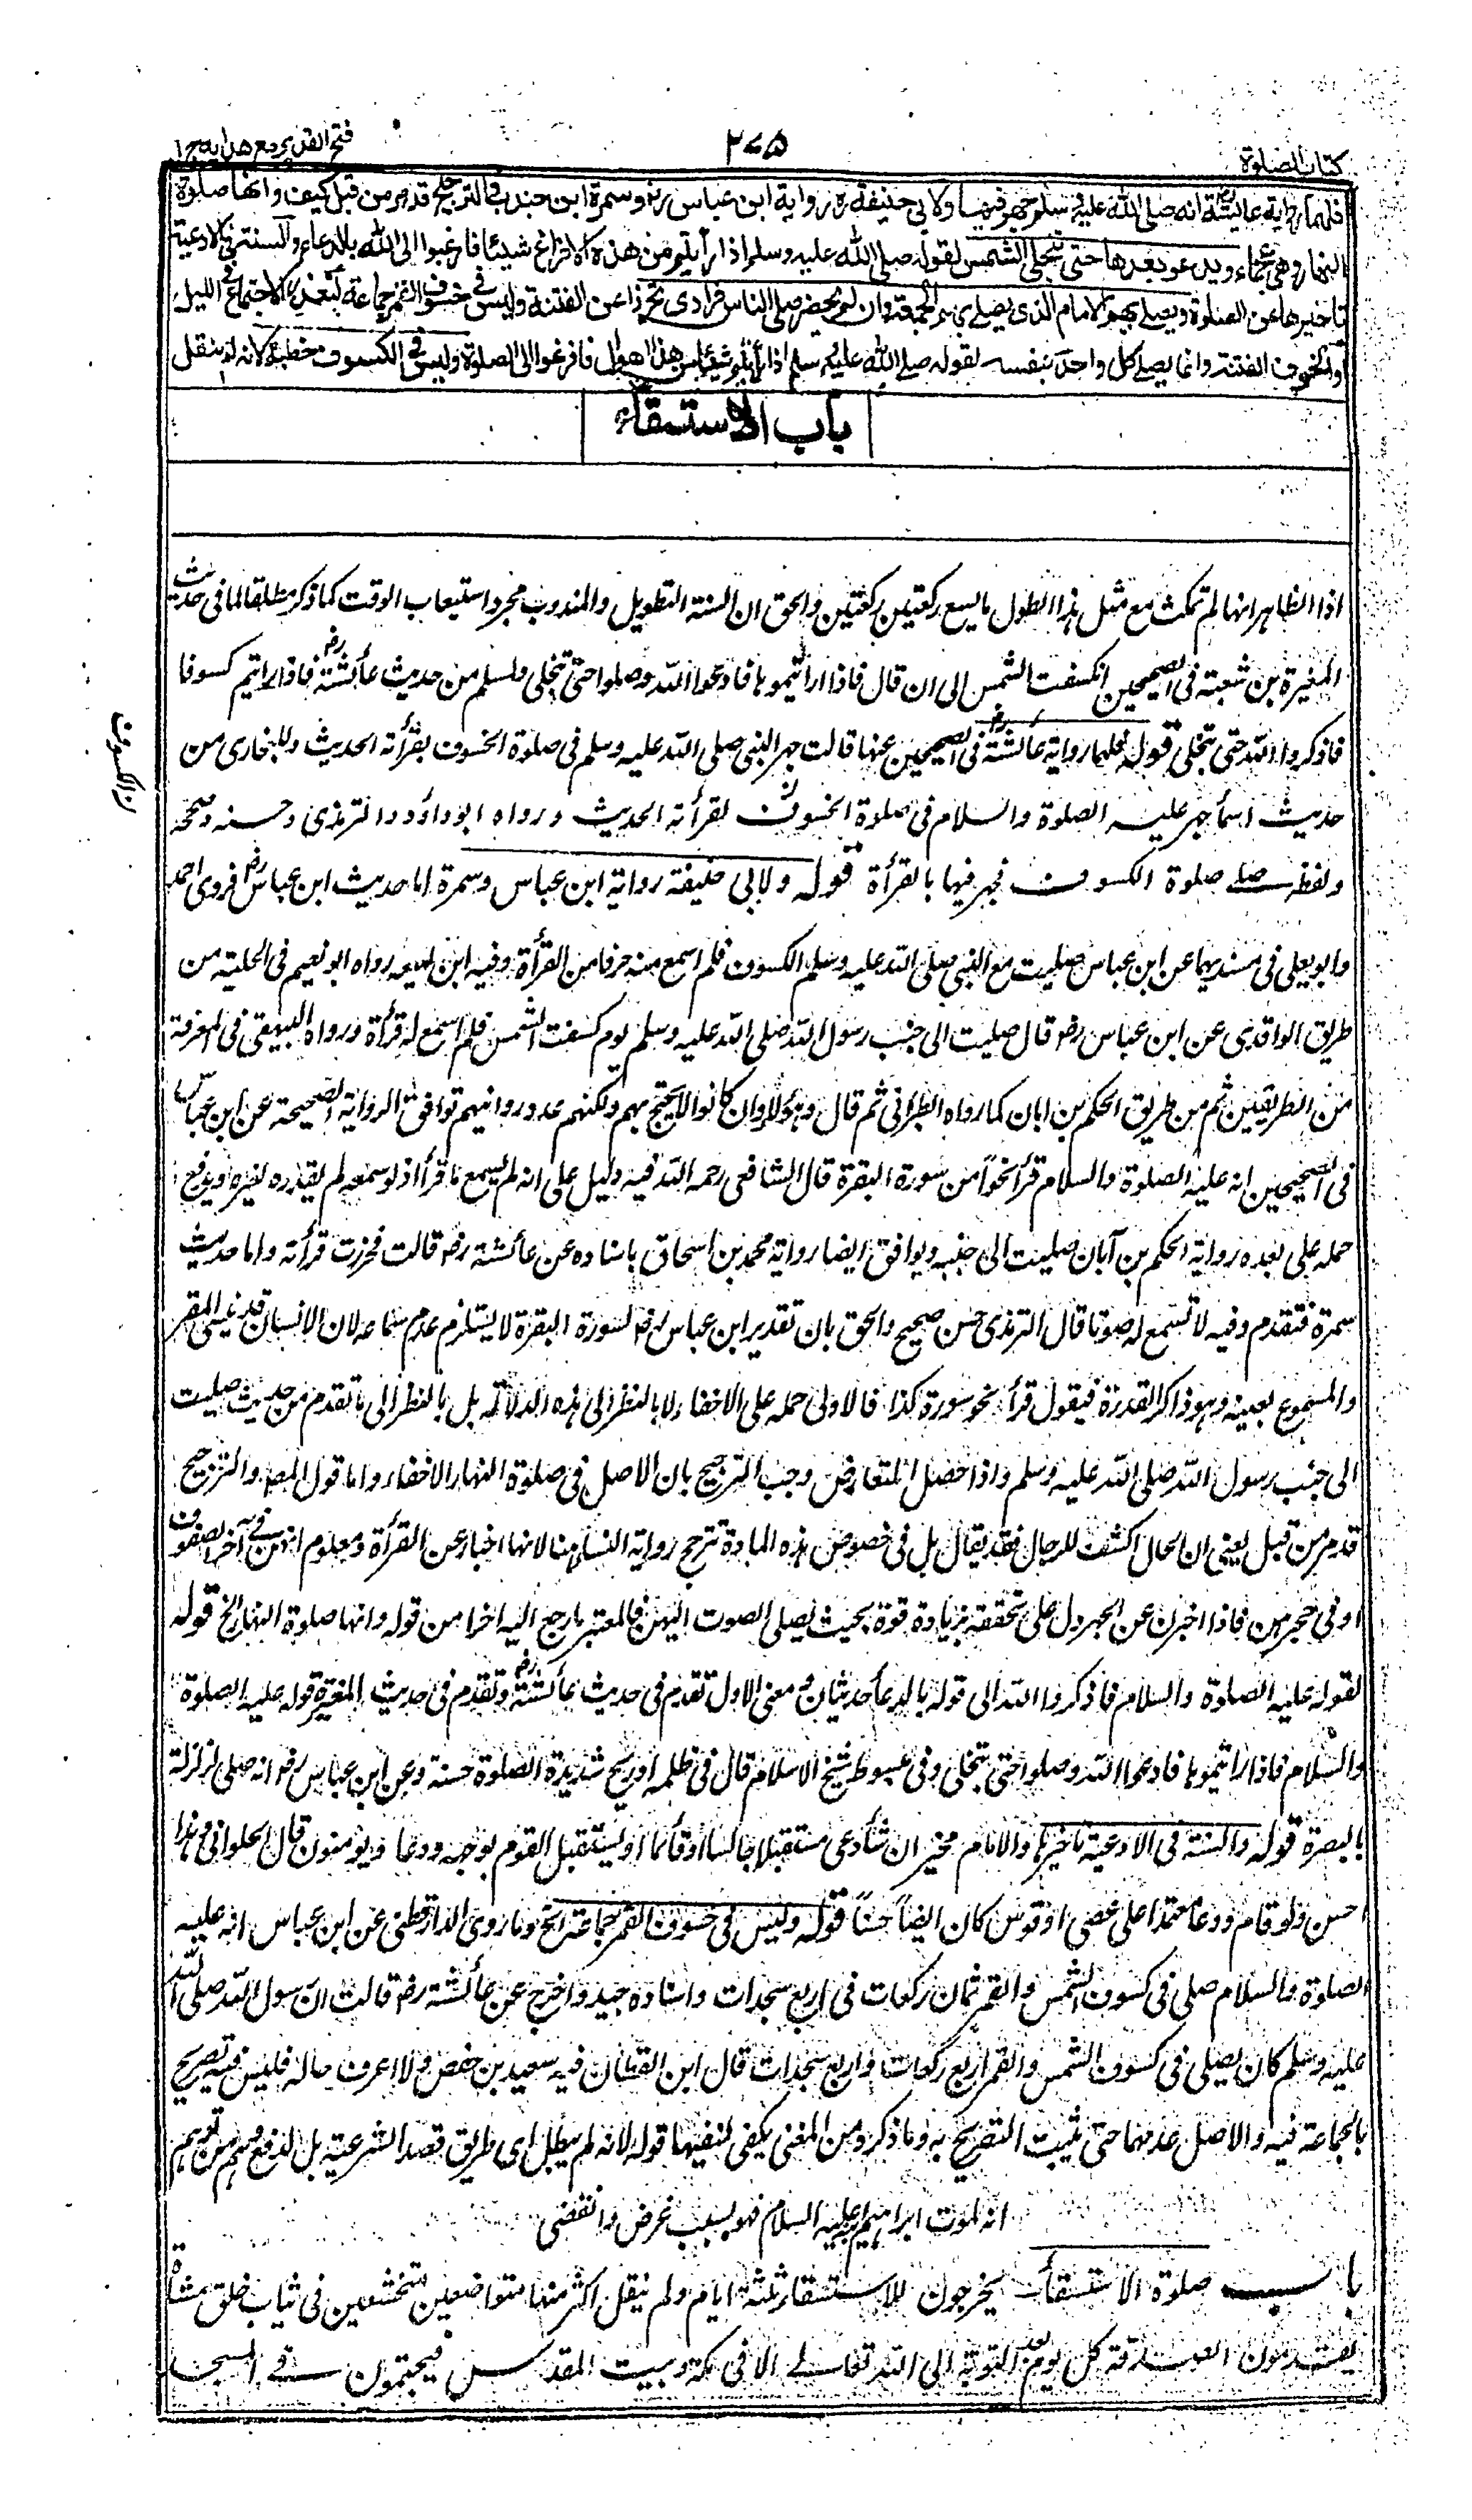 كتاب الصلوة
٢٧٥
فتح القدير مع هدايه ج ١
فلهما رواية عايشة رض انه صلى الله عليه وسلم جهر فيها ولابي حنيفة ره رواية ابن عباس رض وسمرة ابن جندب والترجيح قد مر من قبل كيف وانها صلوة
النهار وهي عجماء ويدعو بعدها حتى تنجلي الشمس لقوله صلى الله عليه وسلم اذا رأيتم من هذه الافزاع شيئا فارغبوا الى الله بالدعاء والسنة في الادعية
تاخيرها عن الصلوة ويصلي بهم الامام الذي يصلي بهم الجمعة وان لم يحضر صلى الناس فرادى تحرزا عن الفتنة وليس في خسوف القمر جماعة لتعذر الاجتماع في الليل
او لخوف الفتنة وانما يصلي كل واحد بنفسه لقوله صلى الله عليه وسلم اذا رأيتم شيئا من هذا الاهوال فافزعوا الى الصلوة وليس في الكسوف خطبة لانه لم ينقل
باب الاستسقاء
اذا الظاهر انها لم تمكث مع مثل هذا الطول ما يسع ركعتين ركعتين والحق ان السنة التطويل والمندوب مجرد استيعاب الوقت كما ذكر مطلقا لما في حديث
المغيرة بن شعبة في الصحيحين انكسفت الشمس الى ان قال فاذا رأيتموها فادعوا الله وصلوا حتى تنجلي ولمسلم من حديث عائشة رض فاذا رايتم كسوفا
فاذكروا الله حتى تنجلي قوله فلهما رواية عائشة رض في الصحيحين عنها قالت جهر النبي صلى الله عليه وسلم في صلوة الخسوف بقرأته الحديث وللبخاري من
حديث اسماء جهر عليه الصلوة والسلام في صلوة الخسوف لقرأته الحديث ورواه ابو داؤد والترمذي وحسنه وصححه
ولفظه صلى صلوة الكسوف فجهر فيها بالقرأة قوله ولابي حنيفة رواية ابن عباس وسمرة اما حديث ابن عباس رض فروى احمد
وابو يعلى في مسنديهما عن ابن عباس صليت مع النبي صلى الله عليه وسلم الكسوف فلم اسمع منه حرفا من القرأة وفيه ابن لهيعه رواه ابو نعيم في الحلية من
طريق الواقدي عن ابن عباس رض قال صليت الى جنب رسول الله صلى الله عليه وسلم يوم كسفت الشمس فلم اسمع له قرأة ورواه البيهقي في المعرفة
من الطريقين ثم من طريق الحكم بن ابان كما رواه الطبراني ثم قال وهؤلاء وان كانوا لا يحتج بهم ولكنهم عدد وروايتهم توافق الرواية الصحيحة عن ابن عباس رض
في الصحيحين انه عليه الصلوة والسلام قرأ نحوا من سورة البقرة قال الشافعي رحمه الله فيه دليل على انه لم يسمع ما قرأ اذ لو سمعه لم يقدره لغيره ويدفع
حمله على بعده رواية الحكم بن آبان صليت الى جنبه ويوافق ايضا رواية محمد بن اسحاق باسناده عن عائشة رض قالت فحزرت قرأته واما حديث
سمرة فتقدم وفيه لا تسمع له صوتا قال الترمذي حسن صحيح والحق بان تقدير ابن عباس رض لسورة البقرة لا يستلزم عدم سماعه لان الانسان قد ينسى المقر
والمسموع بعينه وهو ذاكر لقدره فيقول قرأ نحو سورة كذا فالاولى حمله على الاخفاء لا بالنظر الى هذه الدلالة بل بالنظر الى ما تقدم من حديث صليت
الى جنب رسول الله صلى الله عليه وسلم واذا حصل التعارض وجب الترجيح بان الاصل في صلوة النهار الاخفاء واما قول المصـ والترجيح
قد مر من قبل يعني ان الحال اكشف للرجال فقد يقال بل في خصوص هذه المادة ترجح رواية النساء هنا لانها اخبار عن القرأة ومعلوم انهن في آخر الصفوف
او في حجرهن فاذا اخبرن عن الجهر دل على تحققه بزيادة قوة بحيث يصل الصوت اليهن فالمعتبر ما رجع اليه اخرا من قوله وانها صلوة النهار الخ قوله
لقوله عليه الصلوة والسلام فاذكروا الله الى قوله بالدعأ حديثان ومعنى الاول تقدم في حديث عائشة رض وتقدم في حديث المغيرة قوله عليه الصلوة
والسلام فاذا رأيتموها فادعوا الله وصلوا حتى تنجلي وفي مبسوط شيخ الاسلام قال في ظلمه او ريح شديدة الصلوة حسنة وعن ابن عباس رض انه صلى لزلزلة
بالبصرة قوله والسنة في الادعية تاخيرها والامام مخير ان شأ دعى مستقبلا جالسا او قائما او يستقبل القوم بوجهه ودعا ويؤمنون قال الحلواني وهذا
احسن ولو قام ودعا معتمدا على عصى او قوس كان ايضاً حسناً قوله وليس في خسوف القمر جماعة الخ وما روى الدارقطني عن ابن عباس انه عليه
الصلوة والسلام صلى في كسوف الشمس والقمر ثمان ركعات في اربع سجدات واسناده جيد واخرج عن عائشة رض قالت ان رسول الله صلى الله
عليه وسلم كان يصلي في كسوف الشمس والقمر اربع ركعات واربع سجدات قال ابن القطان فيه سعيد بن حفص ولا اعرف حاله فليس فيه تصريح
بالجماعة فيه والاصل عدمها حتى يثبت التصريح به وما ذكره من المعنى يكفي لنفيها قوله لانه لم ينقل اى طريق قصد الشرعية بل لدفع وهم من توهم
انه لموت ابراهيم عليه السلام فهو بسبب عرض وانقضى
باب صلوة الاستسقأ يخرجون للاستسقاء ثلثة ايام ولم ينقل اكثر منها متواضعين متخشعين في ثياب خلق مشاة
يقدمون الصدقة كل يوم بعد التوبة الى الله تعالى الا في مكة وبيت المقدس فيجتمعون في المسجد